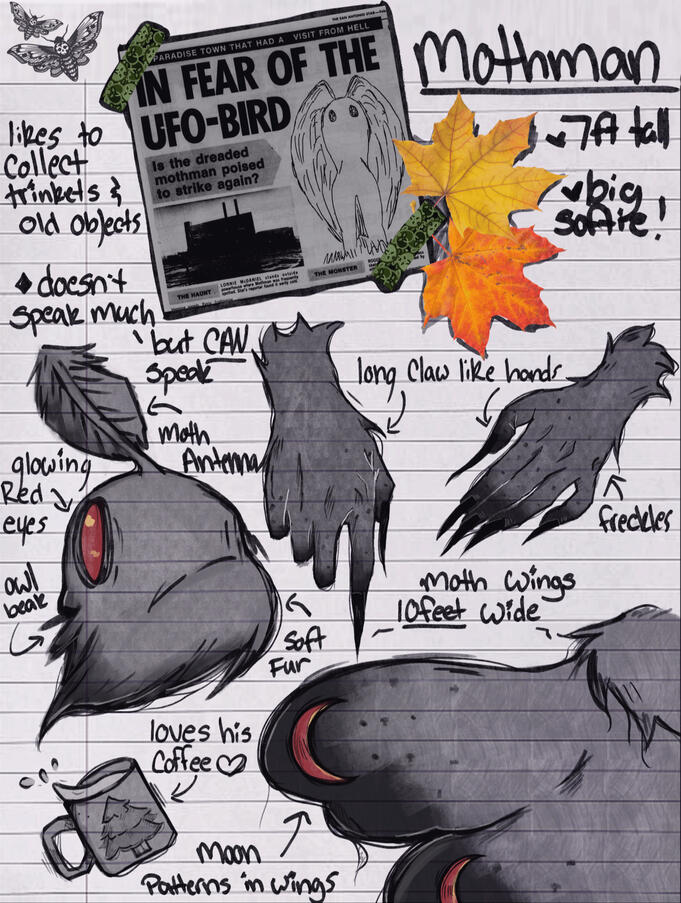 Mothman
THE SAN ANTONIO STAR
PARADISE TOWN THAT HAD A VISIT FROM HELL
IN FEAR OF THE
UFO-BIRD
Is the dreaded
mothman poised
to strike again?
THE HAUNT
LONNIE McDANIEL stands outside
THE MONSTER
7ft tall
big
softie!
likes to
collect
trinkets &
old objects
doesn't
speak much
but CAN
speak
moth
Antenna
long claw like hands
freckles
glowing
Red
eyes
owl
beak
Soft
Fur
moth wings
10feet wide
loves his
coffee
moon
Patterns in wings